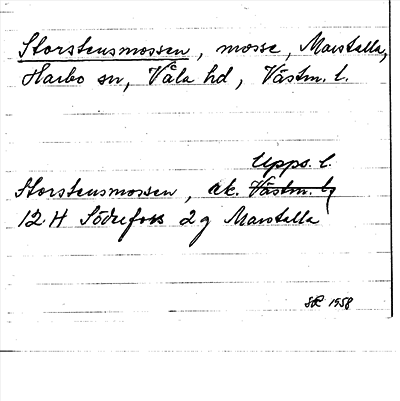 Storstensmossen, mosse, Marstalla,
Harbo sn, Våla hd, Västm. l.
Upps. l.
Storstensmossen, ek. Västm. l
12 H Söderfors 2 g Marstalla
1958